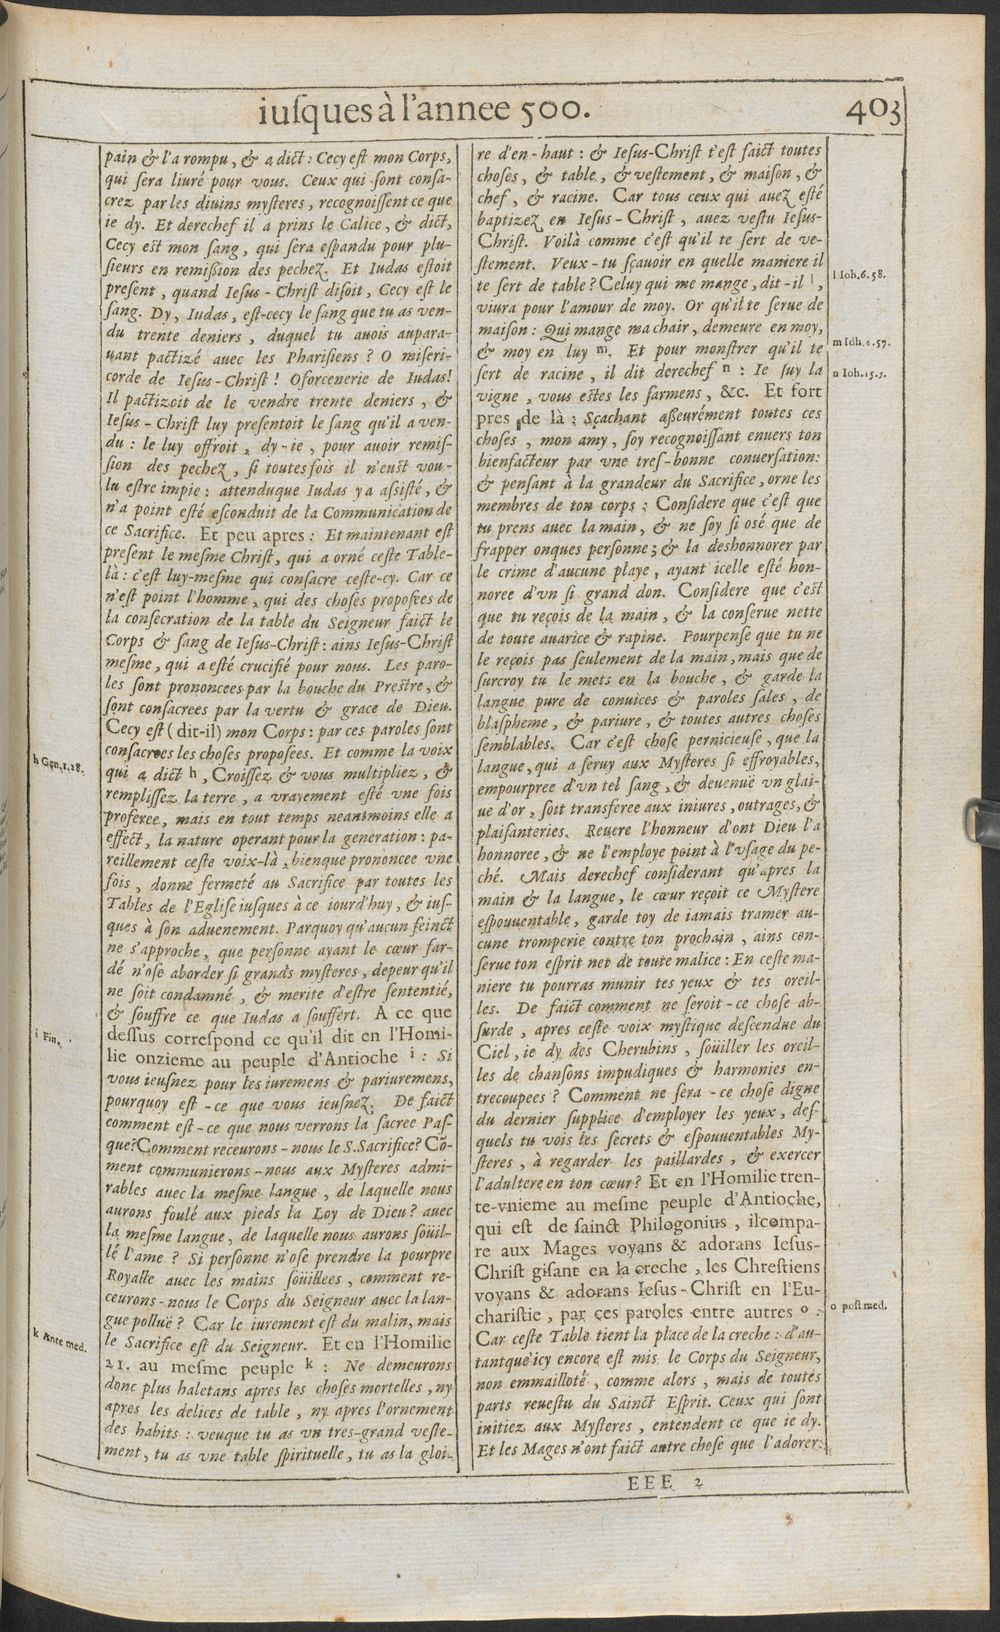 iuſques à l'annee 500.
403
pain & l'a rompu, & a dict : Cecy eſt mon Corps,
qui ſera liuré pour vous. Ceux qui ſont conſa-
crez par les diuins myſteres, recognoiſſent ce que
ie dy. Et derechef il a prins le Calice, & dict,
Cecy eſt mon ſang, qui ſera eſpandu pour plu-
ſieurs en remiſſion des pechez. Et Iudas eſtoit
preſent, quand Ieſus-Chriſt diſoit, Cecy eſt le
ſang. Dy, Iudas, eſt-cecy le ſang que tu as ven-
du trente deniers, duquel tu auois aupara-
uant pactizé auec les Phariſiens ? O miſeri-
corde de Ieſus-Chriſt ! O forcenerie de Iudas!
Il pactizoit de le vendre trente deniers, &
Ieſus-Chriſt luy preſentoit le ſang qu'il a ven-
du : le luy offroit, dy-ie, pour auoir remiſ-
ſion des pechez, ſi toutesfois il n'euſt vou-
lu eſtre impie : attenduque Iudas y a aſſiſté, &
n'a point eſté eſconduit de la Communication de
ce Sacrifice. Et peu apres : Et maintenant eſt
preſent le meſme Chriſt, qui a orné ceſte Table-
là : c'eſt luy-meſme qui conſacre ceſte-cy. Car ce
n'eſt point l'homme, qui des choſes propoſees de
la conſecration de la table du Seigneur faict le
Corps & ſang de Ieſus-Chriſt : ains Ieſus-Chriſt
meſme, qui a eſté crucifié pour nous. Les paro-
les ſont prononcees par la bouche du Preſtre, &
ſont conſacrees par la vertu & grace de Dieu.
Cecy eſt (dit-il) mon Corps : par ces paroles ſont
conſacrees les choſes propoſees. Et comme la voix
qui a dict h, Croiſſez & vous multipliez, &
rempliſſez la terre, a vrayement eſté vne fois
proferee, mais en tout temps neantmoins elle a
effect, la nature operant pour la generation : pa-
reillement ceſte voix-là, bienque prononcee vne
fois, donne fermeté au Sacrifice par toutes les
Tables de l'Egliſe iuſques à ce iourd'huy, & iuſ-
ques à ſon aduenement. Parquoy qu'aucun feinct
ne s'approche, que perſonne ayant le cœur far-
dé n'oſe aborder ſi grands myſteres, depeur qu'il
ne ſoit condamné, & merite d'eſtre ſententié,
& ſouffre ce que Iudas a ſouffert. A ce que
deſſus correſpond ce qu'il dit en l'Homi-
lie onzieme au peuple d'Antioche i : Si
vous ieuſnez pour les iuremens & pariuremens,
pourquoy eſt-ce que vous ieuſnez. De faict
comment eſt-ce que nous verrons la ſacree Paſ-
que? Comment receurons-nous le S. Sacrifice? Cõ-
ment communierons-nous aux Myſteres admi-
rables auec la meſme langue, de laquelle nous
aurons foulé aux pieds la Loy de Dieu ? auec
la meſme langue, de laquelle nous aurons ſoüil-
lé l'ame ? Si perſonne n'oſe prendre la pourpre
Royalle auec les mains ſoüillees, comment re-
ceurons-nous le Corps du Seigneur auec la lan-
gue polluë ? Car le iurement eſt du malin, mais
le Sacrifice eſt du Seigneur. Et en l'Homilie
21. au meſme peuple k : Ne demeurons
donc plus haletans apres les choſes mortelles, ny
apres les delices de table, ny apres l'ornement
des habits : veuque tu as vn tres-grand veſte-
ment, tu as vne table ſpirituelle, tu as la gloi-
h Gen. 1. 28.
i Fin.
k Ante med.
re d'en-haut : & Ieſus-Chriſt t'eſt faict toutes
choſes, & table, & veſtement, & maiſon, &
chef, & racine. Car tous ceux qui auez eſté
baptizez en Ieſus-Chriſt, auez veſtu Ieſus-
Chriſt. Voilà comme c'eſt qu'il te ſert de ve-
ſtement. Veux-tu ſçauoir en quelle maniere il
te ſert de table ? Celuy qui me mange, dit-il l,
viura pour l'amour de moy. Or qu'il te ſerue de
maiſon : Qui mange ma chair, demeure en moy,
& moy en luy m. Et pour monſtrer qu'il te
ſert de racine, il dit derechef n : Ie ſuy la
vigne, vous eſtes les ſarmens, &c. Et fort
pres de là : Sçachant aſſeurément toutes ces
choſes, mon amy, ſoy recognoiſſant enuers ton
bienfacteur par vne tres-bonne conuerſation:
& penſant à la grandeur du Sacrifice, orne les
membres de ton corps : Conſidere que c'eſt que
tu prens auec la main, & ne ſoy ſi oſé que de
frapper onques perſonne ; & la deshonnorer par
le crime d'aucune playe, ayant icelle eſté hon-
noree d'vn ſi grand don. Conſidere que c'eſt
que tu reçois de la main, & la conſerue nette
de toute auarice & rapine. Pourpenſe que tu ne
le reçois pas ſeulement de la main, mais que de
ſurcroy tu le mets en la bouche, & garde ta
langue pure de conuices & paroles ſales, de
blaſpheme, & pariure, & toutes autres choſes
ſemblables. Car c'eſt choſe pernicieuſe, que la
langue, qui a ſeruy aux Myſteres ſi effroyables,
empourpree d'vn tel ſang, & deuenuë vn glai-
ue d'or, ſoit transferee aux iniures, outrages, &
plaiſanteries. Reuere l'honneur d'ont Dieu l'a
honnoree, & ne l'employe point à l'vſage du pe-
ché. Mais derechef conſiderant qu'apres la
main & la langue, le cœur reçoit ce Myſtere
eſpouuentable, garde toy de iamais tramer au-
cune tromperie contre ton prochain, ains con-
ſerue ton eſprit net de toute malice : En ceſte ma-
niere tu pourras munir tes yeux & tes oreil-
les. De faict comment ne ſeroit-ce choſe ab-
ſurde, apres ceſte voix myſtique deſcendue du
Ciel, ie dy des Cherubins, ſoüiller les oreil-
les de chanſons impudiques & harmonies en-
trecoupees ? Comment ne ſera-ce choſe digne
du dernier ſupplice d'employer les yeux, deſ-
quels tu vois les ſecrets & eſpouuentables My-
ſteres, à regarder les paillardes, & exercer
l'adultere en ton cœur ? Et en l'Homilie tren-
te-vnieme au meſme peuple d'Antioche,
qui eſt de ſainct Philogonius, il compa-
re aux Mages voyans & adorans Ieſus-
Chriſt giſant en la creche, les Chreſtiens
voyans & adorans Ieſus-Chriſt en l'Eu-
chariſtie, par ces paroles entre autres o :
Car ceſte Table tient la place de la creche : d'au-
tant qu'icy encore eſt mis le Corps du Seigneur,
non emmailloté, comme alors, mais de toutes
parts reueſtu du Sainct Eſprit. Ceux qui ſont
initiez aux Myſteres, entendent ce que ie dy.
Et les Mages n'ont faict autre choſe que l'adorer:
l Ioh. 6. 58.
m Ioh. 6. 57.
n Ioh. 15. 5.
o poſt med.
EEE 2